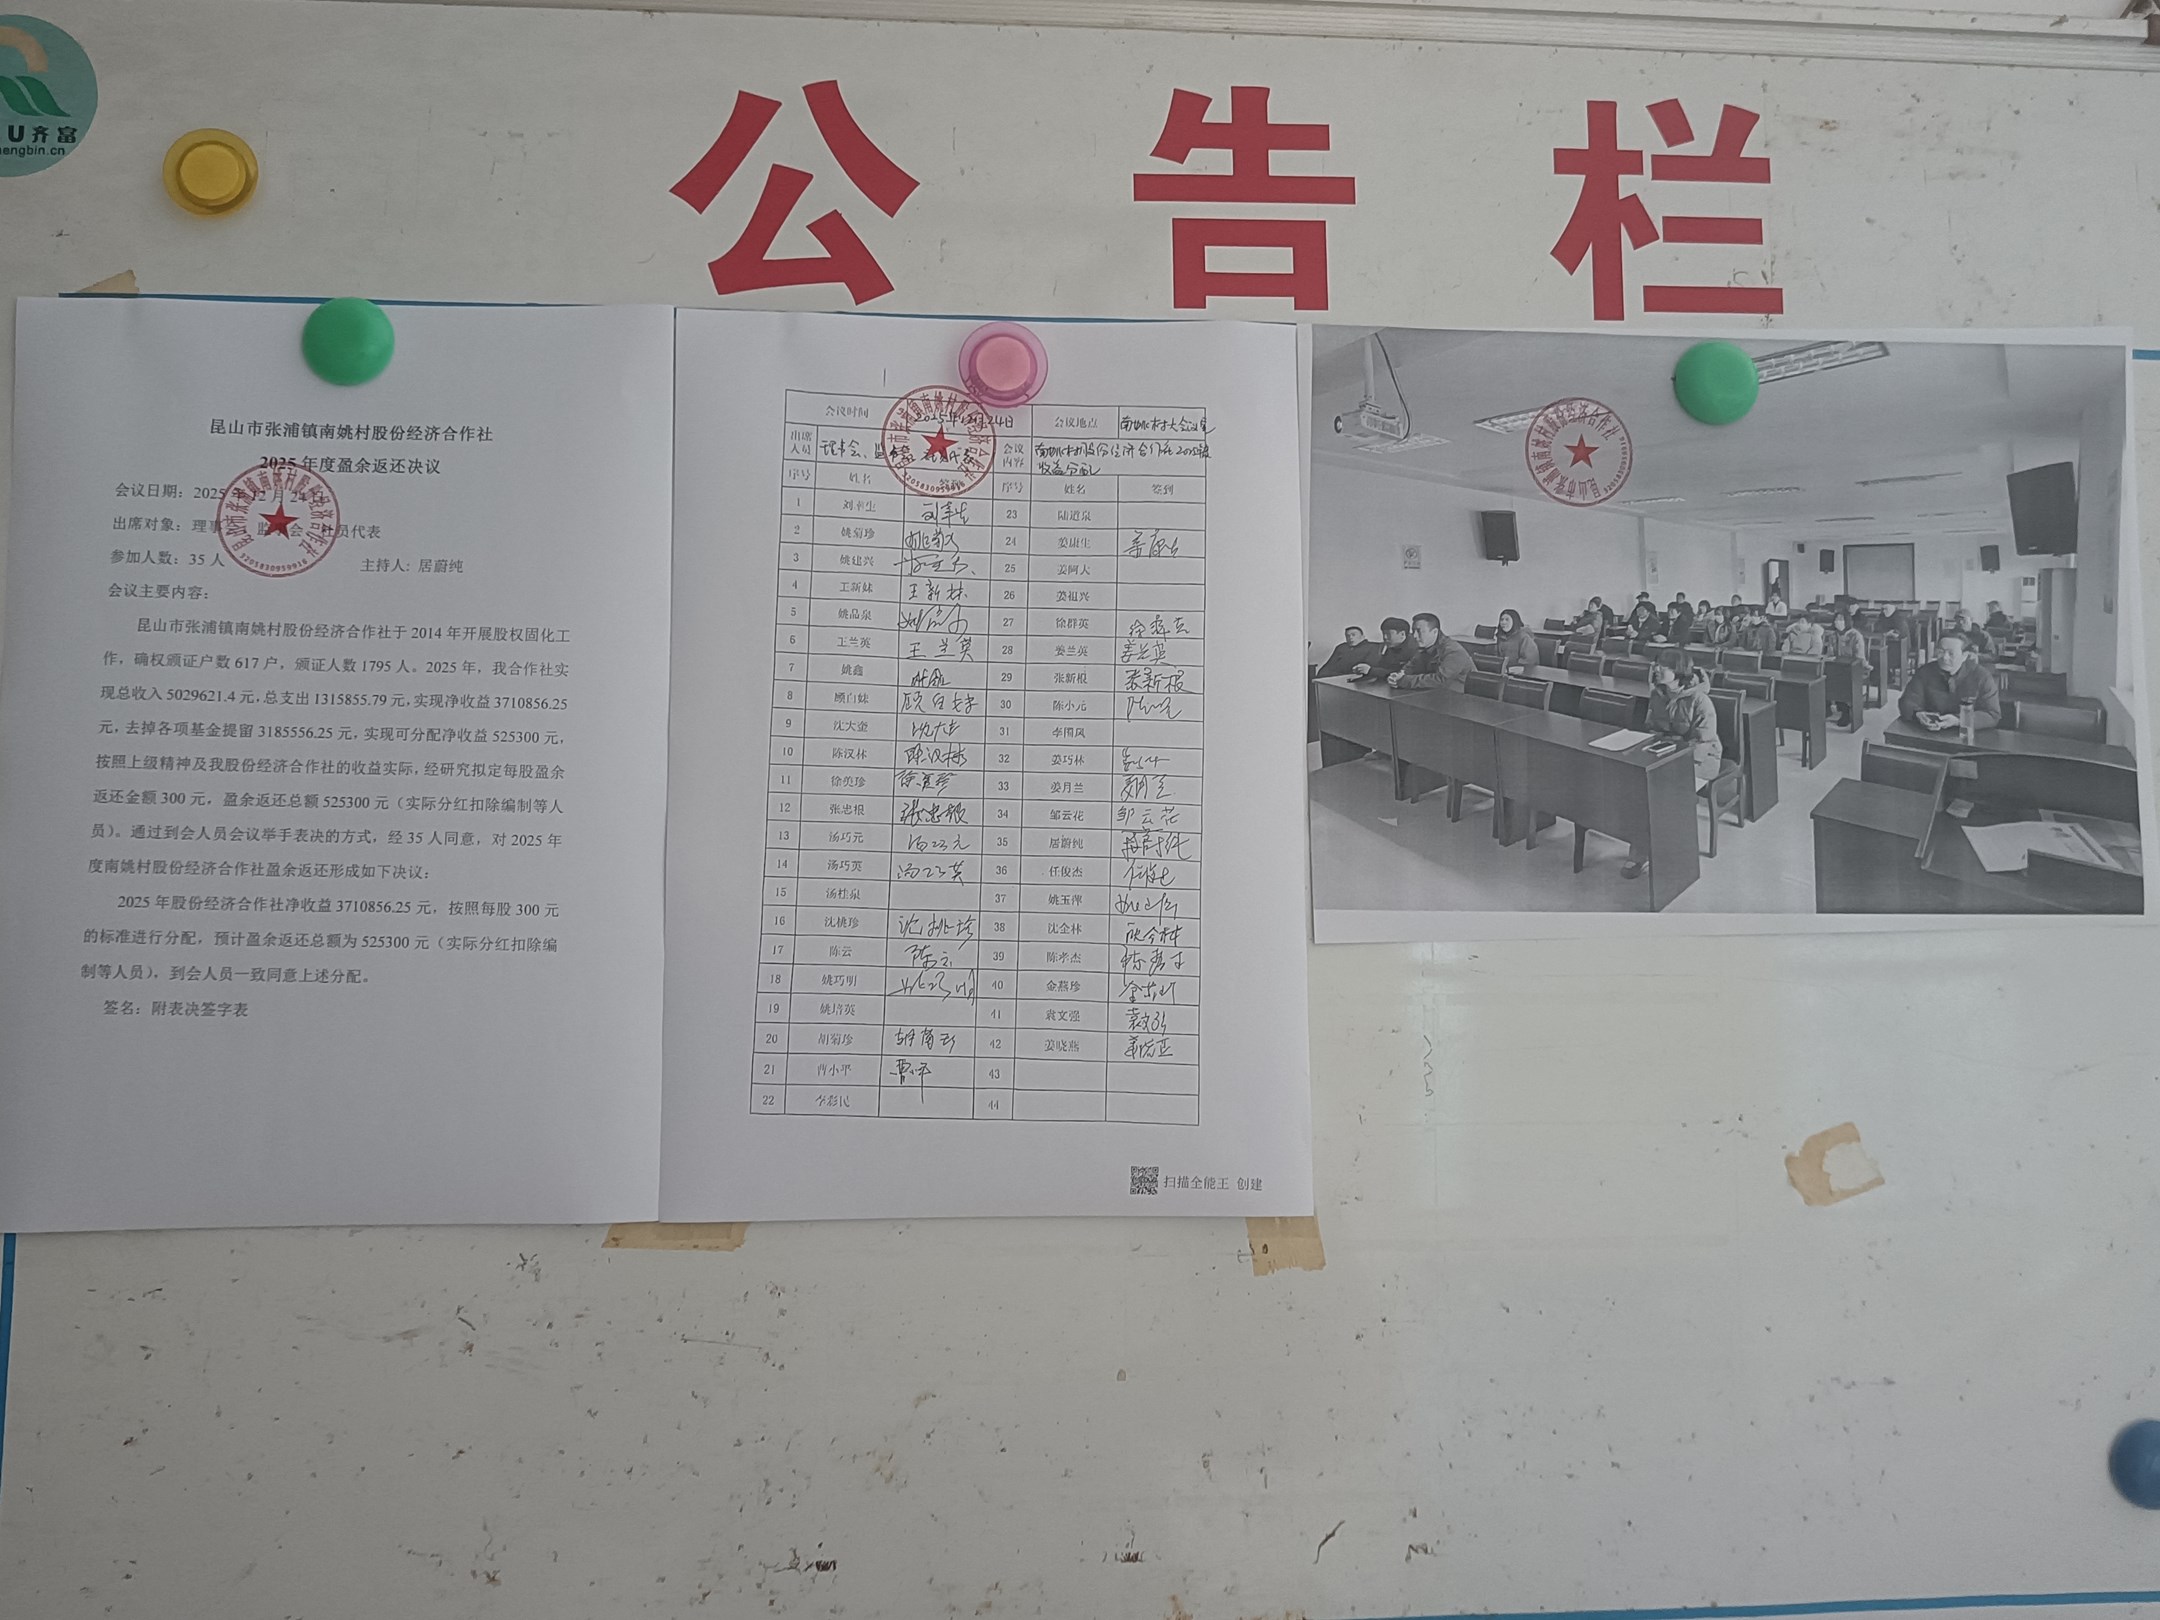 U 齐富
hengbin.cn
公告栏
昆山市张浦镇南姚村股份经济合作社
2025 年度盈余返还决议
会议日期：2025 年 12 月 24 日
出席对象：理事会 监事会 社员代表
参加人数：35 人 主持人：居蔚纯
会议主要内容：
昆山市张浦镇南姚村股份经济合作社于 2014 年开展股权固化工
作，确权颁证户数 617 户，颁证人数 1795 人。2025 年，我合作社实
现总收入 5029621.4 元，总支出 1315855.79 元，实现净收益 3710856.25
元，去掉各项基金提留 3185556.25 元，实现可分配净收益 525300 元，
按照上级精神及我股份经济合作社的收益实际，经研究拟定每股盈余
返还金额 300 元，盈余返还总额 525300 元（实际分红扣除编制等人
员）。通过到会人员会议举手表决的方式，经 35 人同意，对 2025 年
度南姚村股份经济合作社盈余返还形成如下决议：
2025 年股份经济合作社净收益 3710856.25 元，按照每股 300 元
的标准进行分配，预计盈余返还总额为 525300 元（实际分红扣除编
制等人员），到会人员一致同意上述分配。
签名：附表决签字表
昆山市张浦镇南姚村股份经济合作社
3205830959916
会议时间 2025年12月24日 会议地点 南姚村大会议室
出席人员 理事会、监 会议内容 南姚村股份经济合作社2025年度
收益分配
序号 姓名 签到 序号 姓名 签到
1 刘幸生 23 陆道泉
2 姚菊珍 24 姜康生 姜康生
3 姚建兴 25 姜阿大
4 王新妹 王新妹 26 姜祖兴
5 姚品泉 27 徐群英
6 王兰英 王兰英 28 姜兰英 姜兰英
7 姚鑫 姚鑫 29 张新根 张新根
8 顾白妹 顾白妹 30 陈小元
9 沈大金 31 李国凤
10 陈汉林 陈汉林 32 姜巧林
11 徐美珍 徐美珍 33 姜月兰 姜月兰
12 张忠根 张忠根 34 邹云花 邹云花
13 汤巧元 汤巧元 35 居蔚纯 居蔚纯
14 汤巧英 汤巧英 36 任俊杰
15 汤桂泉 37 姚玉萍
16 沈桃珍 沈桃珍 38 沈全林
17 陈云 陈云 39 陈孝杰
18 姚巧明 姚巧明 40 金燕珍
19 姚培英 41 袁文强
20 胡菊珍 胡菊珍 42 姜晓燕
21 曹小平 43
22 李彩民 44
扫描全能王 创建
昆山市张浦镇南姚村股份经济合作社
3205830959916